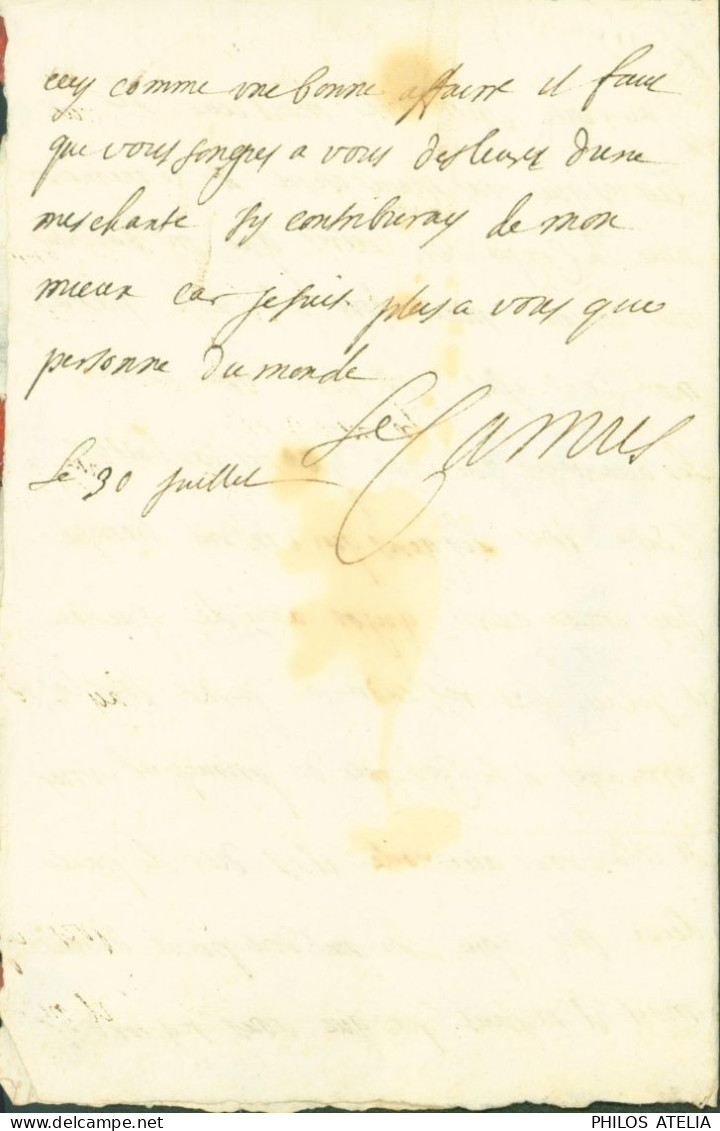 cecy comme une bonne affaire il faut
que vous songies a vous deslivrer dune
meschante jy contribueray de mon
mieux car je suis plus a vous que
personne du monde
Le Camus
le 30 juillet
PHILOS ATELIA